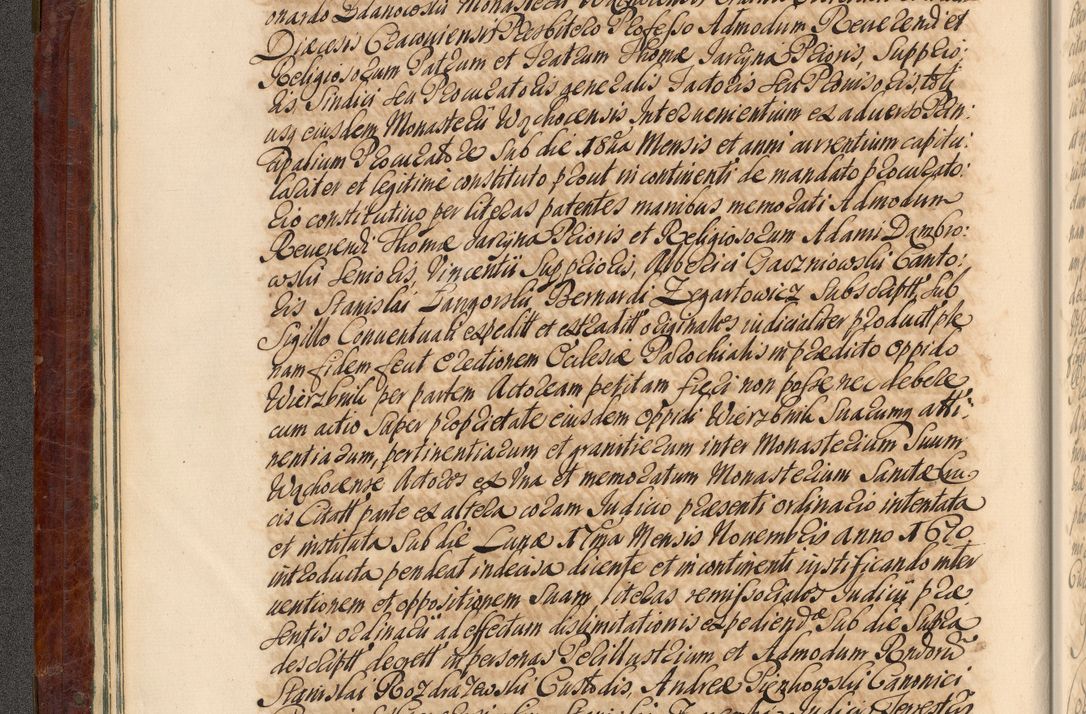 onardo Zdanowski Monasterii
Diæcesis Cracoviensis Presbitero Professo Admodum Reverend et
Religiosorum Patrum et Fratrum Thomæ Jarzyna Prioris, Supprio:
ris Sindici seu Procuratoris generalis Factoris seu Provisoris, toti
usq eiusdem Monasterii Wąchocensis Intervenientium ex adverso Prin:
cipalium Procuratore sub die 18va Mensis et anni currentium capitu:
lariter et legitime constituto prout in continenti de mandato procurato:
rio constitutivo per literas patentes manibus memorati Admodum
Reverendi Thomæ Jarzyna Prioris et Religiosorum Adami Dambro:
wski Senioris, Vincentii Supprioris, Alberici Gaczniowski Canto:
ris Stanislai Langorski, Bernardi Zegartowicz subscriptt, sub
Sigillo Conventuali expeditt et extraditt originales iudicialiter productt ple
nam fidem fecit Erectionem Ecclesiæ Parochialis in prædicto oppido
Wierzbnik per partem Actoream petitam fieri non posse nec debere
cum actio super proprietate eiusdem oppidi Wierzbnik suarumq atti:
nentiarum, pertinentiarum et granitierum inter Monasterium Suum
Wąchocense Actores ex Una et memoratum Monasterium Sanctæ Cru
cis Citatt parte ex altera coram Iudicio præsenti ordinario intentata
et instituta sub die Lunæ 17ma Mensis Novembris anno
introducta pendeat indecisa dicente et in continenti iustificando inter
ventionem et oppositionem suam literas remissoriales Iudicii præ
sentis ordinarii ad effectum dislimitationis expediendæ sub die supra
descriptt decrett in personas Perillustrium et Admodum Rndorū
Stanislai Rozdrażewski Custodis, Andreæ Pienkowski Canonici